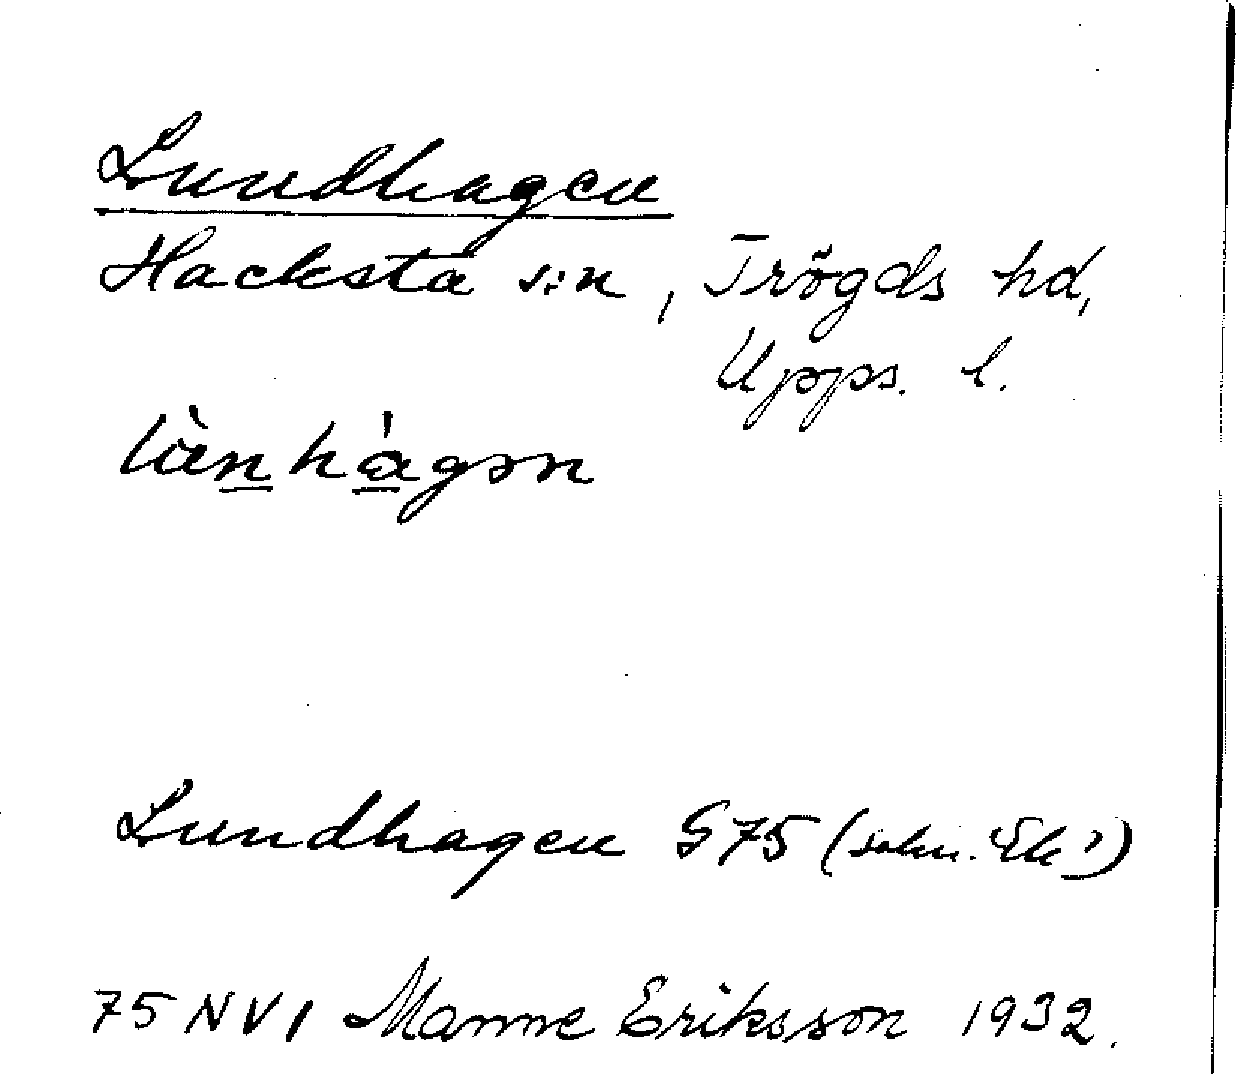 Lundhagen
Hacksta s:n, Trögds hd,
Upps. l.
Lundhagen G75
75 NV1 Manne Eriksson 1932.